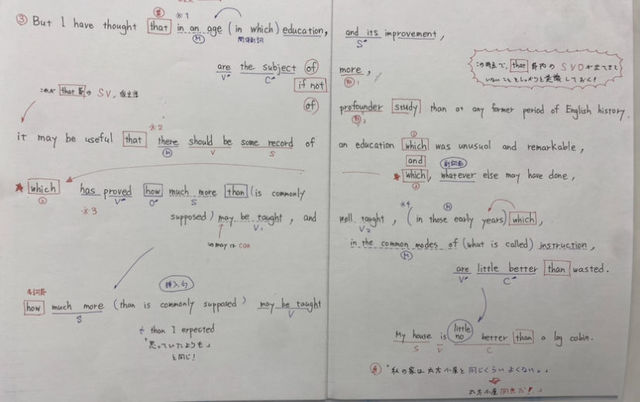 ③ But I have thought that ※1 in an age (in which) education,
Ⓜ 関係副詞
are the subject of
V" C"
if not
of
この that 節の SV、仮主語
it may be useful that ※2 there should be some record of
Ⓜ V S
★ which has proved how much more than (is commonly
② V" O" S
※3 supposed) may be taught, and
V₁
may は can
名詞節 挿入句
how much more (than is commonly supposed) may be taught
S V
than I expected
「思っていたよりも」
と同じ!
and its improvement,
S"
more,
profounder study than at any former period of English history.
この時点で、that 節内の SVO が出てきて
いないことをしっかりと意識しておく!
①
an education which was unusual and remarkable,
and 副詞節
★ which, whatever else may have done,
②
well taught, ※4 (in those early years) which,
V₂ Ⓜ
in the common modes of (what is called) instruction,
Ⓜ
are little better than wasted.
V" C"
little
My house is no better than a log cabin.
S V C
「私の家は丸太小屋と同じくらいよくない。」
丸太小屋同然だ!